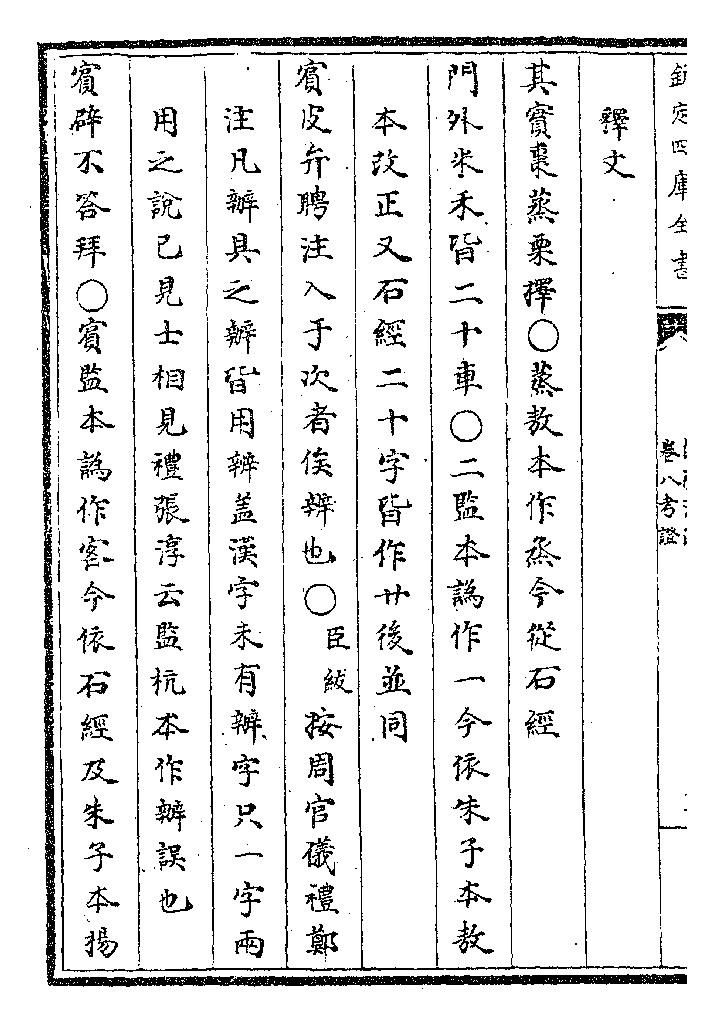 欽定四庫全書
卷八考證
釋文
其實棗蒸栗擇○蒸敖本作烝今從石經
門外米禾皆二十車○二監本譌作一今依朱子本敖
本改正又石經二十字皆作廿後並同
賓皮弁聘注入于次者俟辨也○臣紱按周官儀禮鄭
注凡辦具之辦皆用辨蓋漢字未有辦字只一字兩
用之說已見士相見禮張淳云監杭本作辦誤也
賓辟不答拜○賓監本譌作客今依石經及朱子本楊